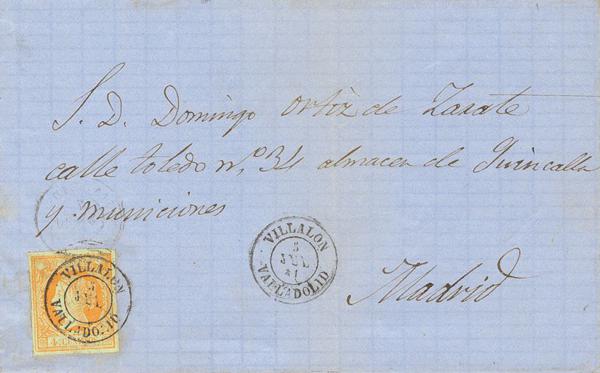 S. D. Domingo Ortiz de Zarate
calle toledo nº 34 almacen de Quincalla
y municiones
Madrid
VILLALON
5
JUL
61
VALLADOLID
VILLALON
5
JUL
VALLADOLID